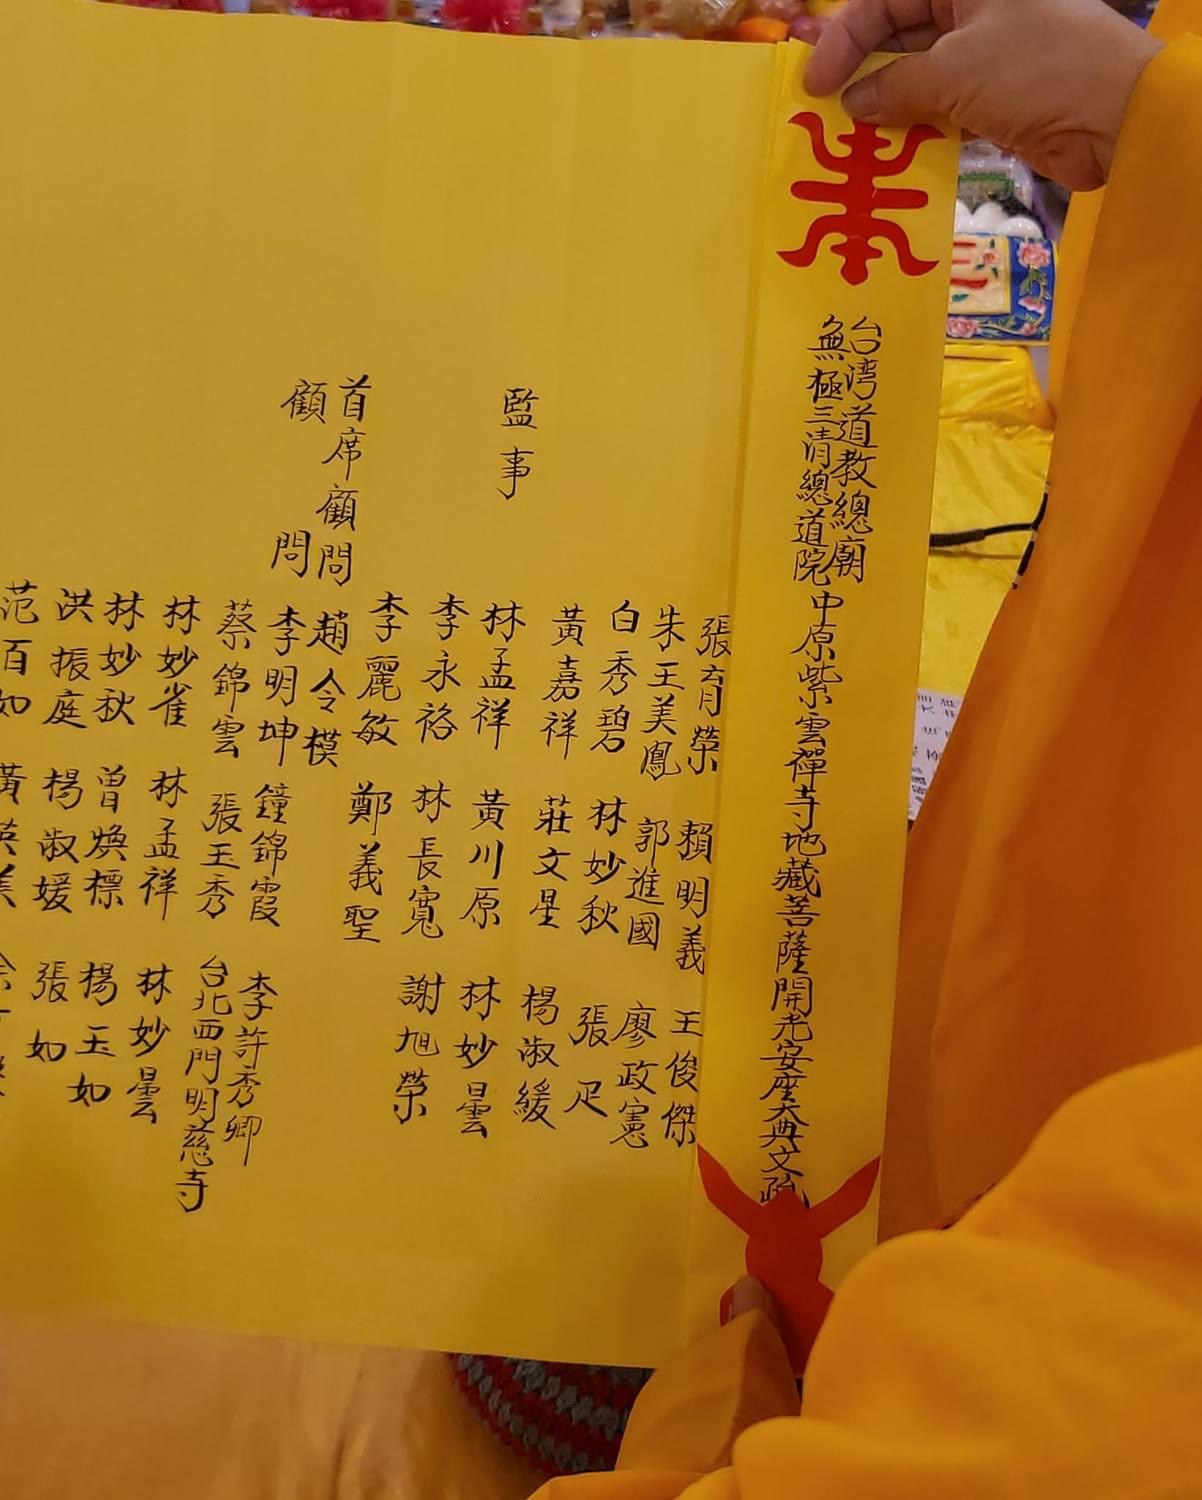 台湾道教總廟
無極三清總道院
中原紫雲禪寺地藏菩薩開光安座大典文疏
張育榮 賴明義 王俊傑
朱王美鳳 郭進國 廖政憲
白秀碧 林妙秋 張疋
黃嘉祥 莊文星 楊淑緩
監事 林孟祥 黃川原 林妙曇
李永裕 林長寬 謝旭榮
李麗敏 鄭義聖
首席顧問 趙令模
顧問 李明坤 鐘錦霞 李許秀卿
蔡錦雲 張玉秀 台北西門明慈寺
林妙雀 林孟祥 林妙曇
林妙秋 曾煥標 楊玉如
洪振庭 楊淑媛 張如
范百如 黃英美